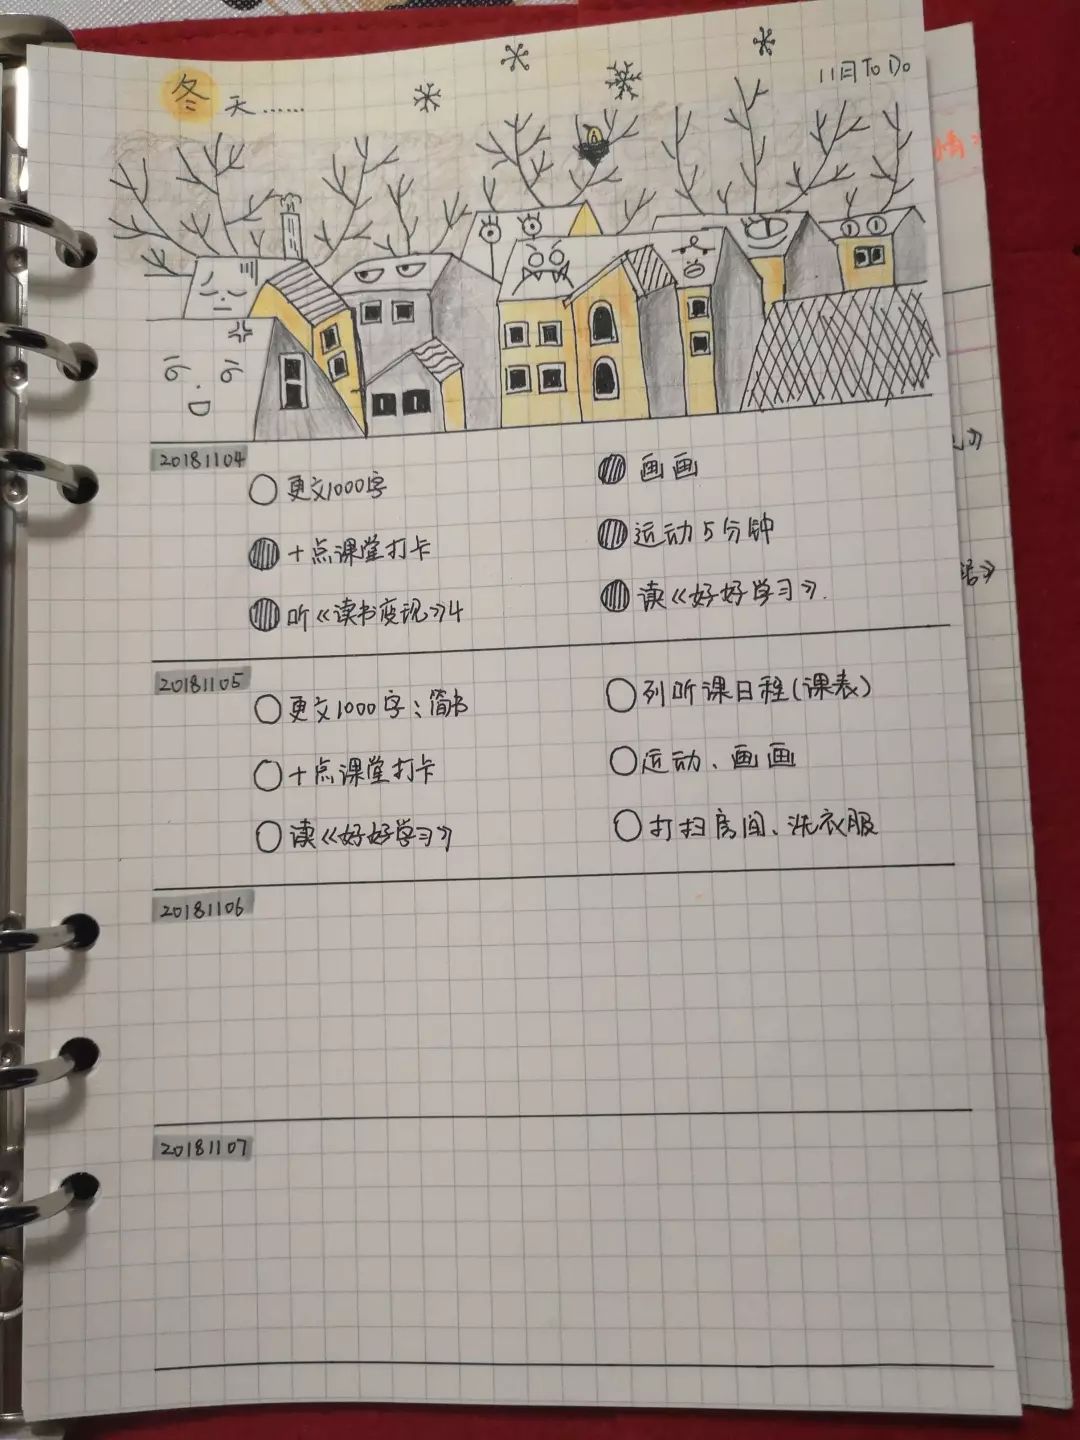 冬天……
11月 To Do
情
20181104
更文1000字
画画
十点课堂打卡
运动5分钟
听《读书变现》4
读《好好学习》.
20181105
更文1000字：简书
列听课日程(课表)
十点课堂打卡
运动、画画
读《好好学习》
打扫房间、洗衣服
20181106
20181107